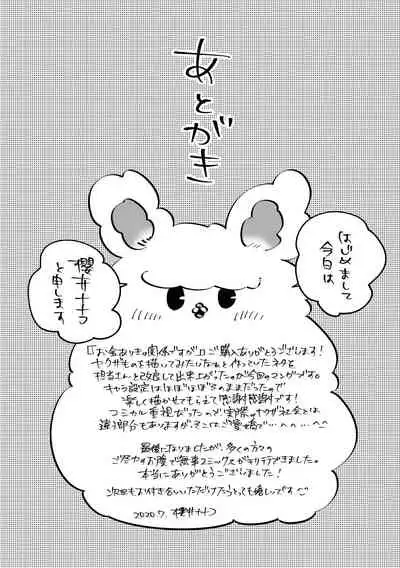 あとがき
はじめまして
今日は
櫻井ナナコ
と申します
「お金ありきの関係ですが」ご購入ありがとうございます!
ヤクザものを描いてみたいなぁと作っていたネタを
担当さんと改良して出来上がったのが今回のマンガです。
キャラ設定はほぼほぼそのままだったので
楽しく描かせてもらえて感謝感謝です!
コミカル重視だったので実際のヤクザ社会とは
違う部分もありますがそこはご愛嬌で…
最後になりましたが、多くの方々の
ご尽力のお陰で無事コミックスができました。
本当にありがとうございました!
次回もお付き合いいただけたらとっても嬉しいです
2020.7. 櫻井ナナコ